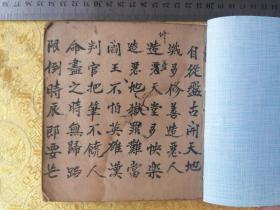 自從盤古開天地
多修善造惡人
造惡天堂多快樂
造惡地獄罪難當
閻王不怕英雄漢
判官把筆不饒人
命盡之時無歸路
限倒時辰即要芒